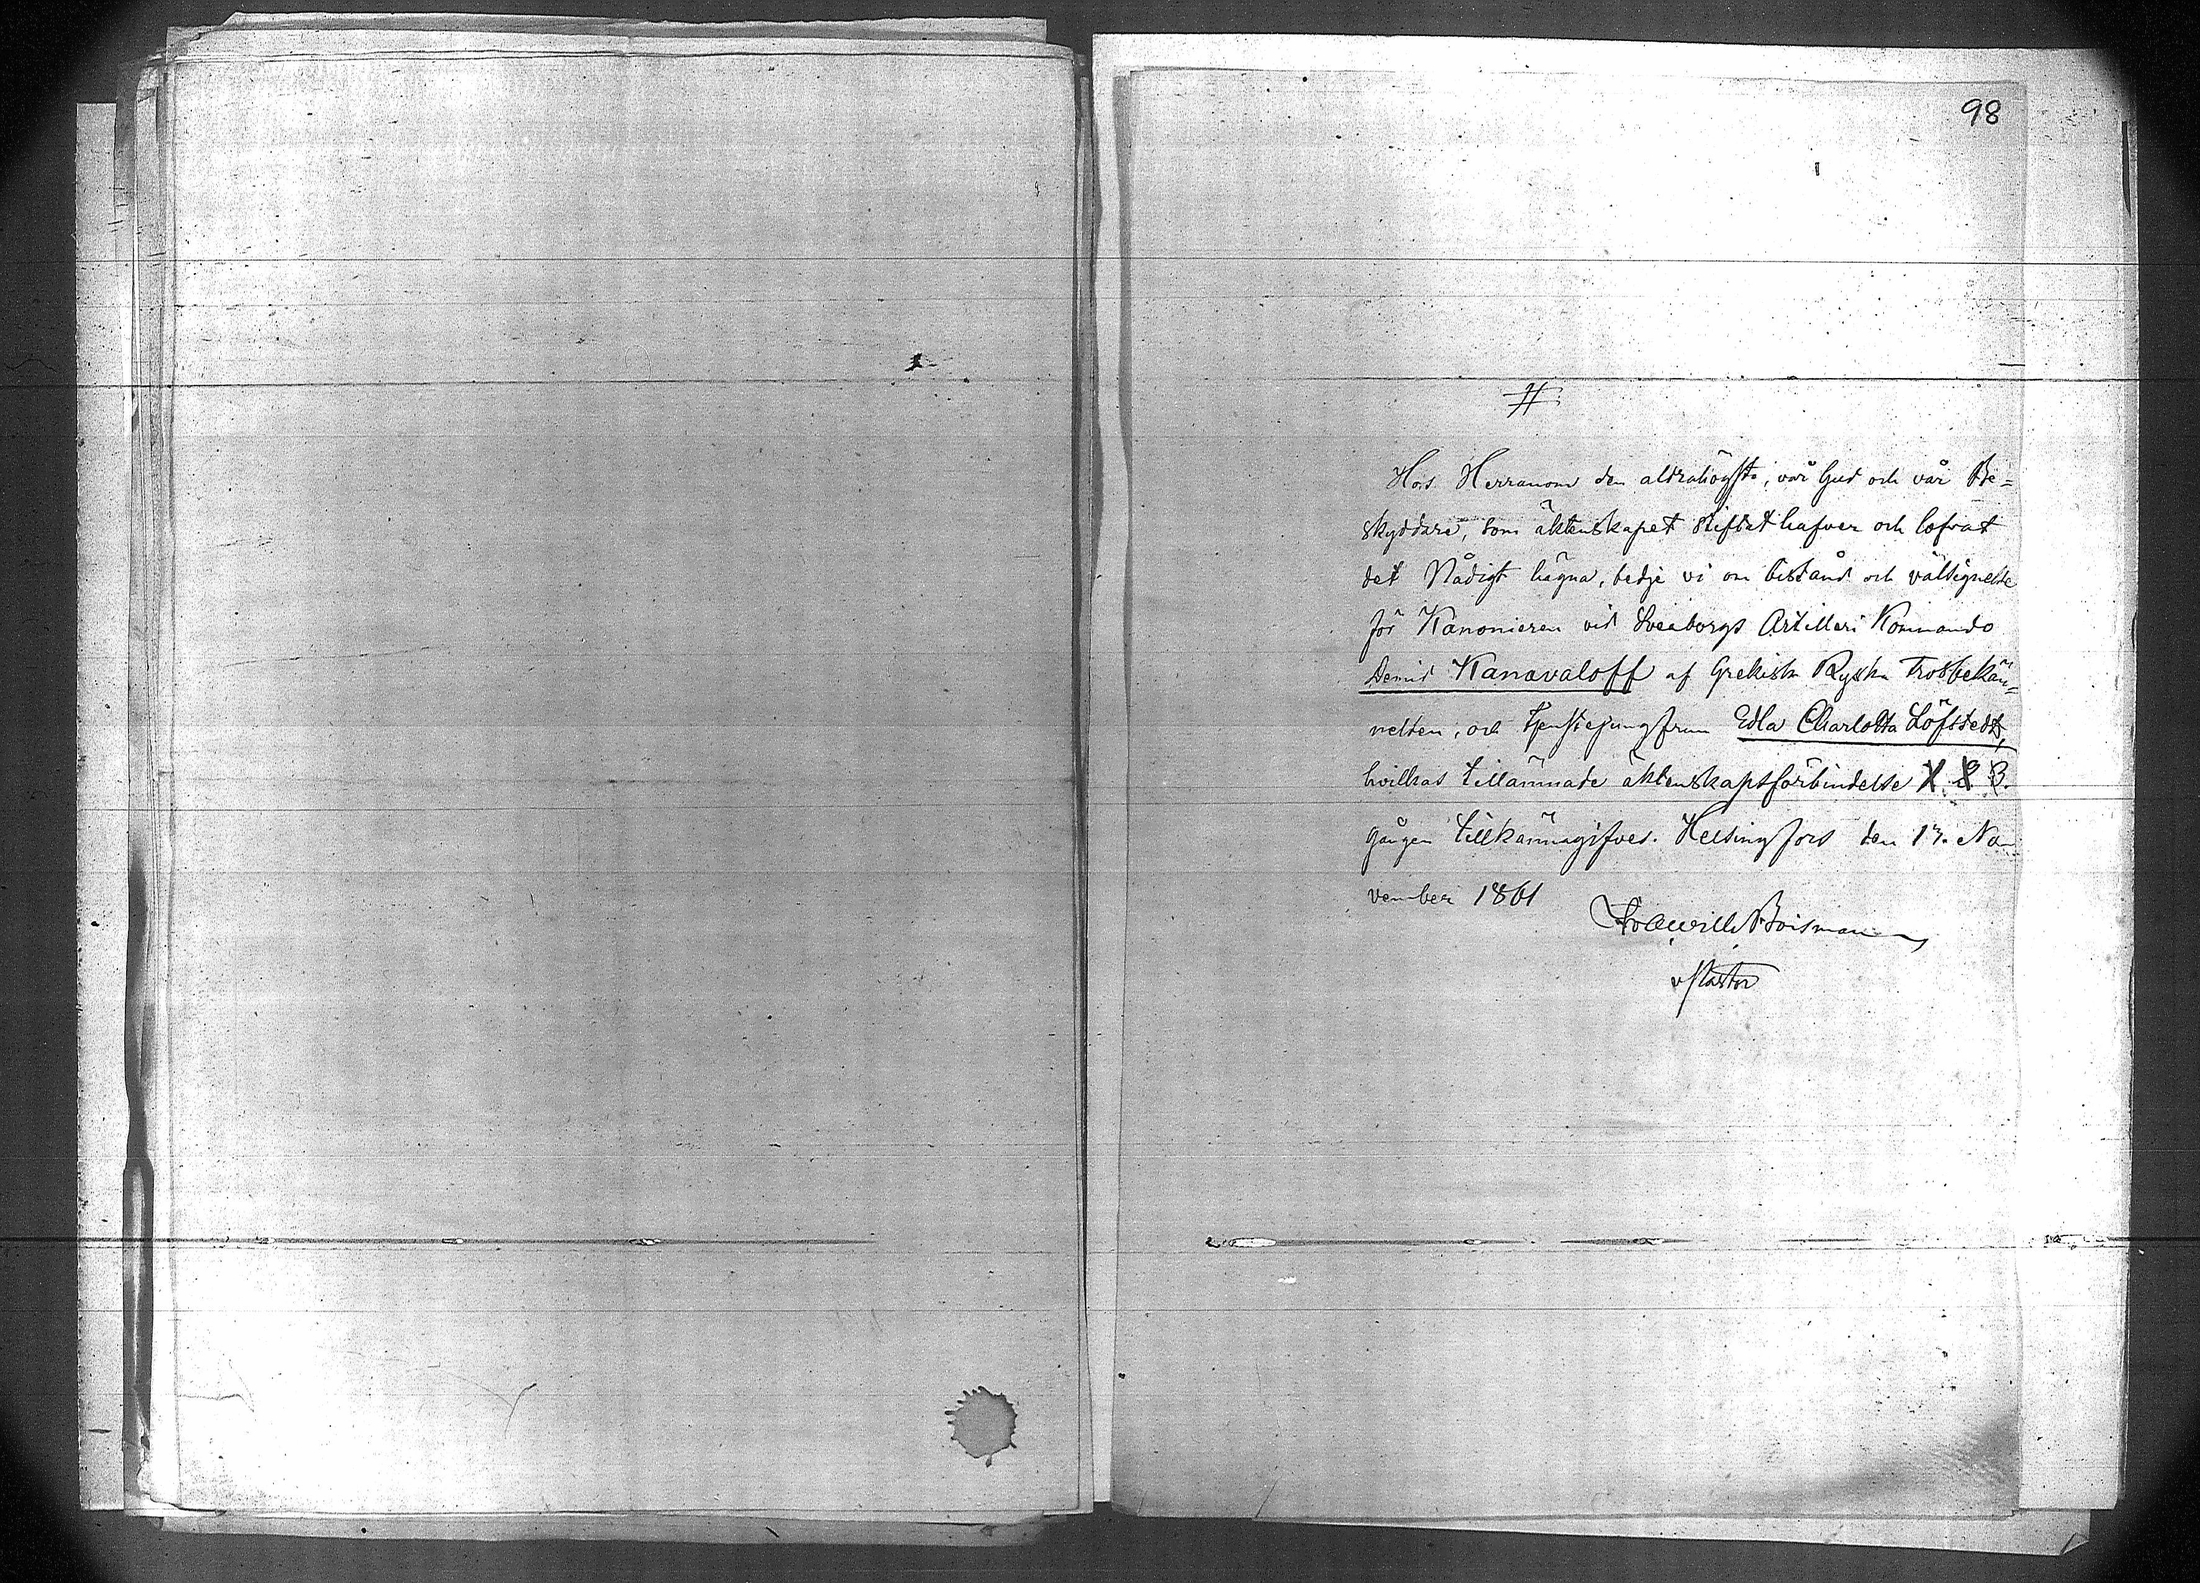 98
#
Hos Herranom den aldrahögste, vår Gud och vår Be=
skyddare, som äktenskapet stiftat hafver och lofvat
det Nådigt hägna, bedje vi om bistånd och välsignelse
för Kanonieren vid Sveaborgs Artilleri Kommando
Demid Kanavaloff af Grekisk Ryska Trosbekän=
nelsen, och tjenstejungfrun Edla Charlotta Löfstedt,
hvilkas tillämnade äktenskapsförbindelse 1. 2. 3.
gången tillkännagifves. Helsingfors den 13. No
vember 1861
Boisman
v Pastor